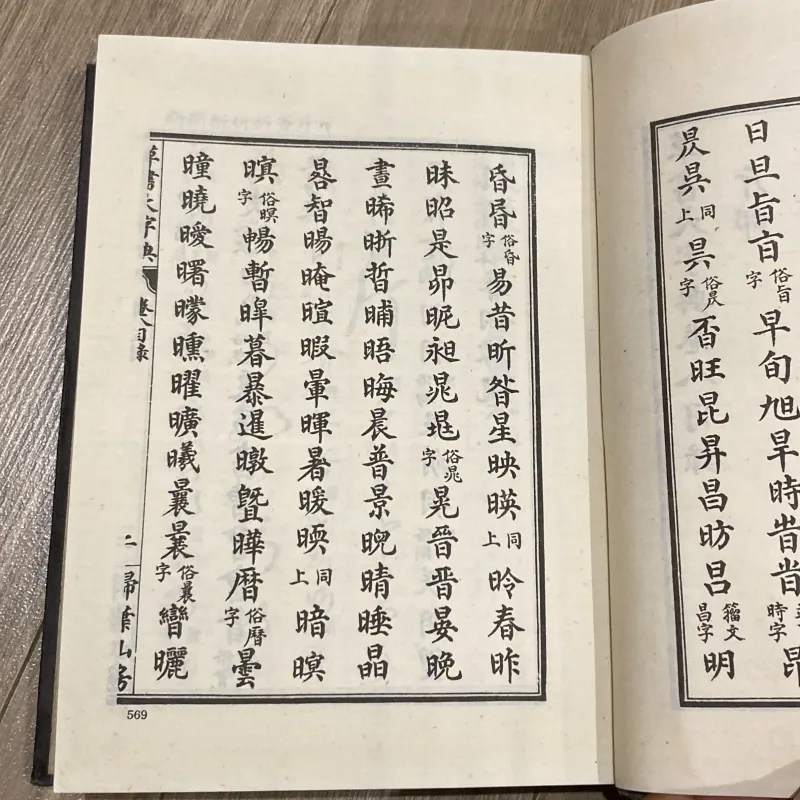 日旦旨㫖俗旨字早旬旭旱時旹旹時字昂
昃同上俗昃字旺昆昇昌昉籀文昌字明
昏昬俗昏字易昔昕昝星映暎同上昤春昨
昧昭是昴昵昶晁俗晁字晃晉晋晏晚
晝晞晣晢晡晤晦晨普景晲晴睡晶
晷智暘晻暄暇暈暉暑暖㬉同上暗暝
暝俗暝字暢暫暤暮暴暹暾暨曄曆俗曆字曇
曈曉曖曙曚曛曜曠曦曩俗曩字曬
草書大字典 卷八目錄 二 掃葉山房
569